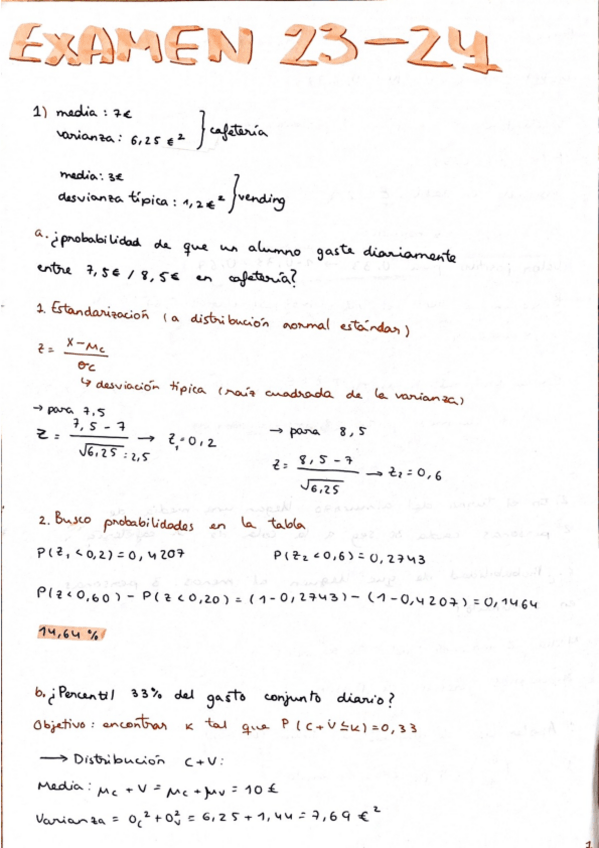 EXAMEN 23-24
1) media: 7€
varianza: 6,25 €² } cafetería
media: 3€
desvianza típica: 1,2€² } vending
a. ¿probabilidad de que un alumno gaste diariamente
entre 7,5€ / 8,5€ en cafetería?
1. Estandarización (a distribución normal estándar)
Z = (X-μc) / σc
↳ desviación típica (raíz cuadrada de la varianza)
→ para 7,5
Z = (7,5-7) / √6,25 = 2,5 → Z₁ = 0,2
→ para 8,5
Z = (8,5-7) / √6,25 → Z₂ = 0,6
2. Busco probabilidades en la tabla
P(Z₁ < 0,2) = 0,4207
P(Z₂ < 0,6) = 0,2743
P(Z < 0,60) - P(Z < 0,20) = (1-0,2743) - (1-0,4207) = 0,1464
14,64 %
b. ¿Percentil 33% del gasto conjunto diario?
Objetivo: encontrar K tal que P(C+V ≤ K) = 0,33
→ Distribución C+V:
Media: μc + v = μc + μv = 10 €
Varianza = σc² + σv² = 6,25 + 1,44 = 7,69 €²
1